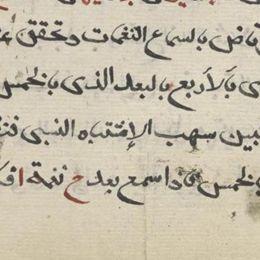 بالسماع النغمات وتحقق
بالأربع بالبعد الذى بالخمس
سبب الاشتباه النسبى
بالخمس فاذا سمع بعد ح نغمة ا